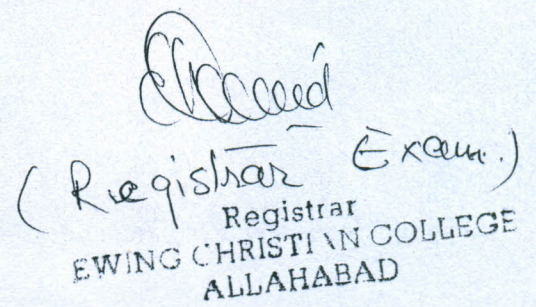 (Registrar Exam.)
Registrar
EWING CHRISTIAN COLLEGE
ALLAHABAD